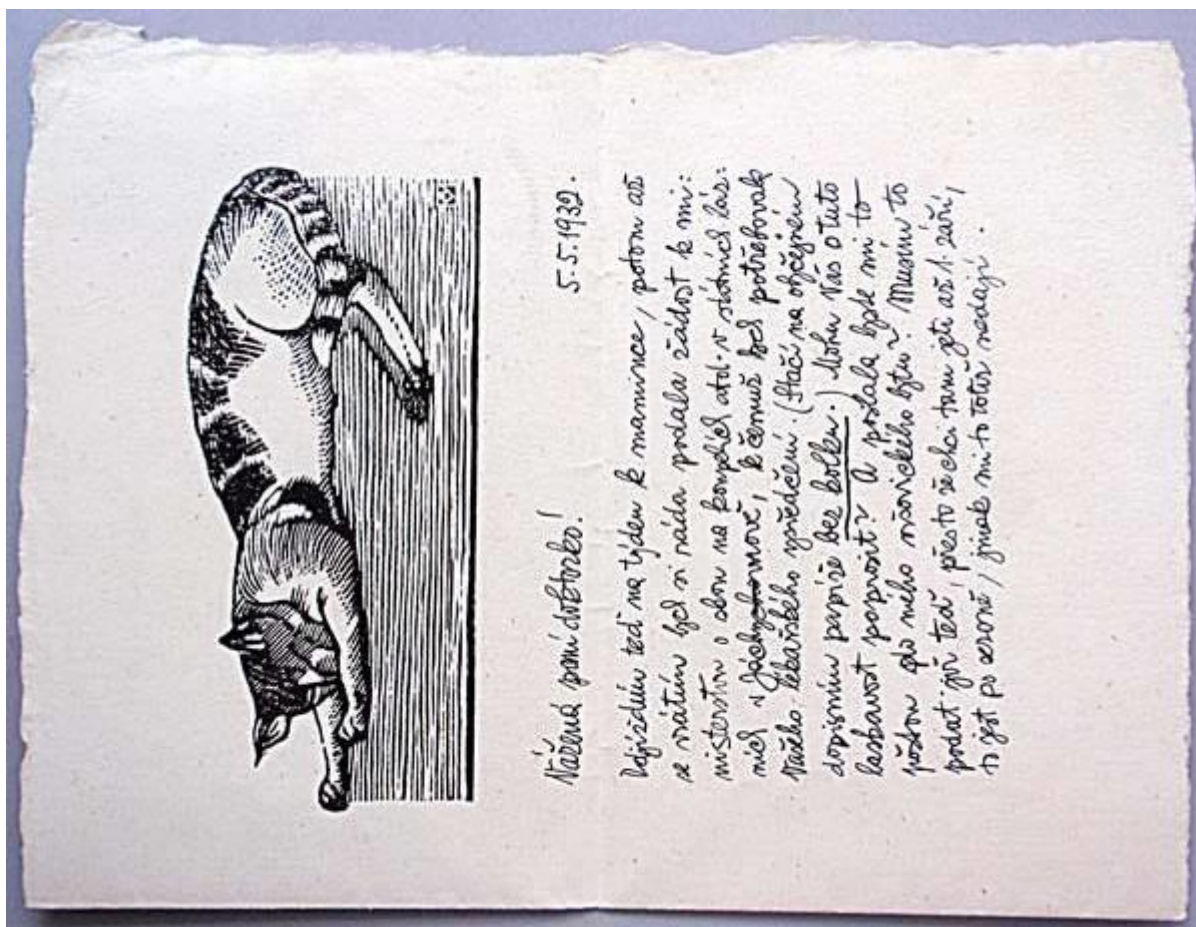 Vážená paní doktorko! 5.5.1932.
Odjíždím teď na týden k mamince, potom až
se vrátím bych si ráda podala žádost k mi:
nisterstvu o slevu na koupelích atd. v státních láz:
ních v Jáchymově, k čemuž bych potřebovala
Vašeho lékařského vysvědčení. (Stačí na obyčejném
dopisním papíře bez kolku.) Mohu Vás o tuto
laskavost poprosit? A poslala byste mi to
poštou do mého bytu? Musím to
podat již teď, přesto že chci tam jeti až 1. září,
to jest po sezoně, jinak mi to totiž nedají.